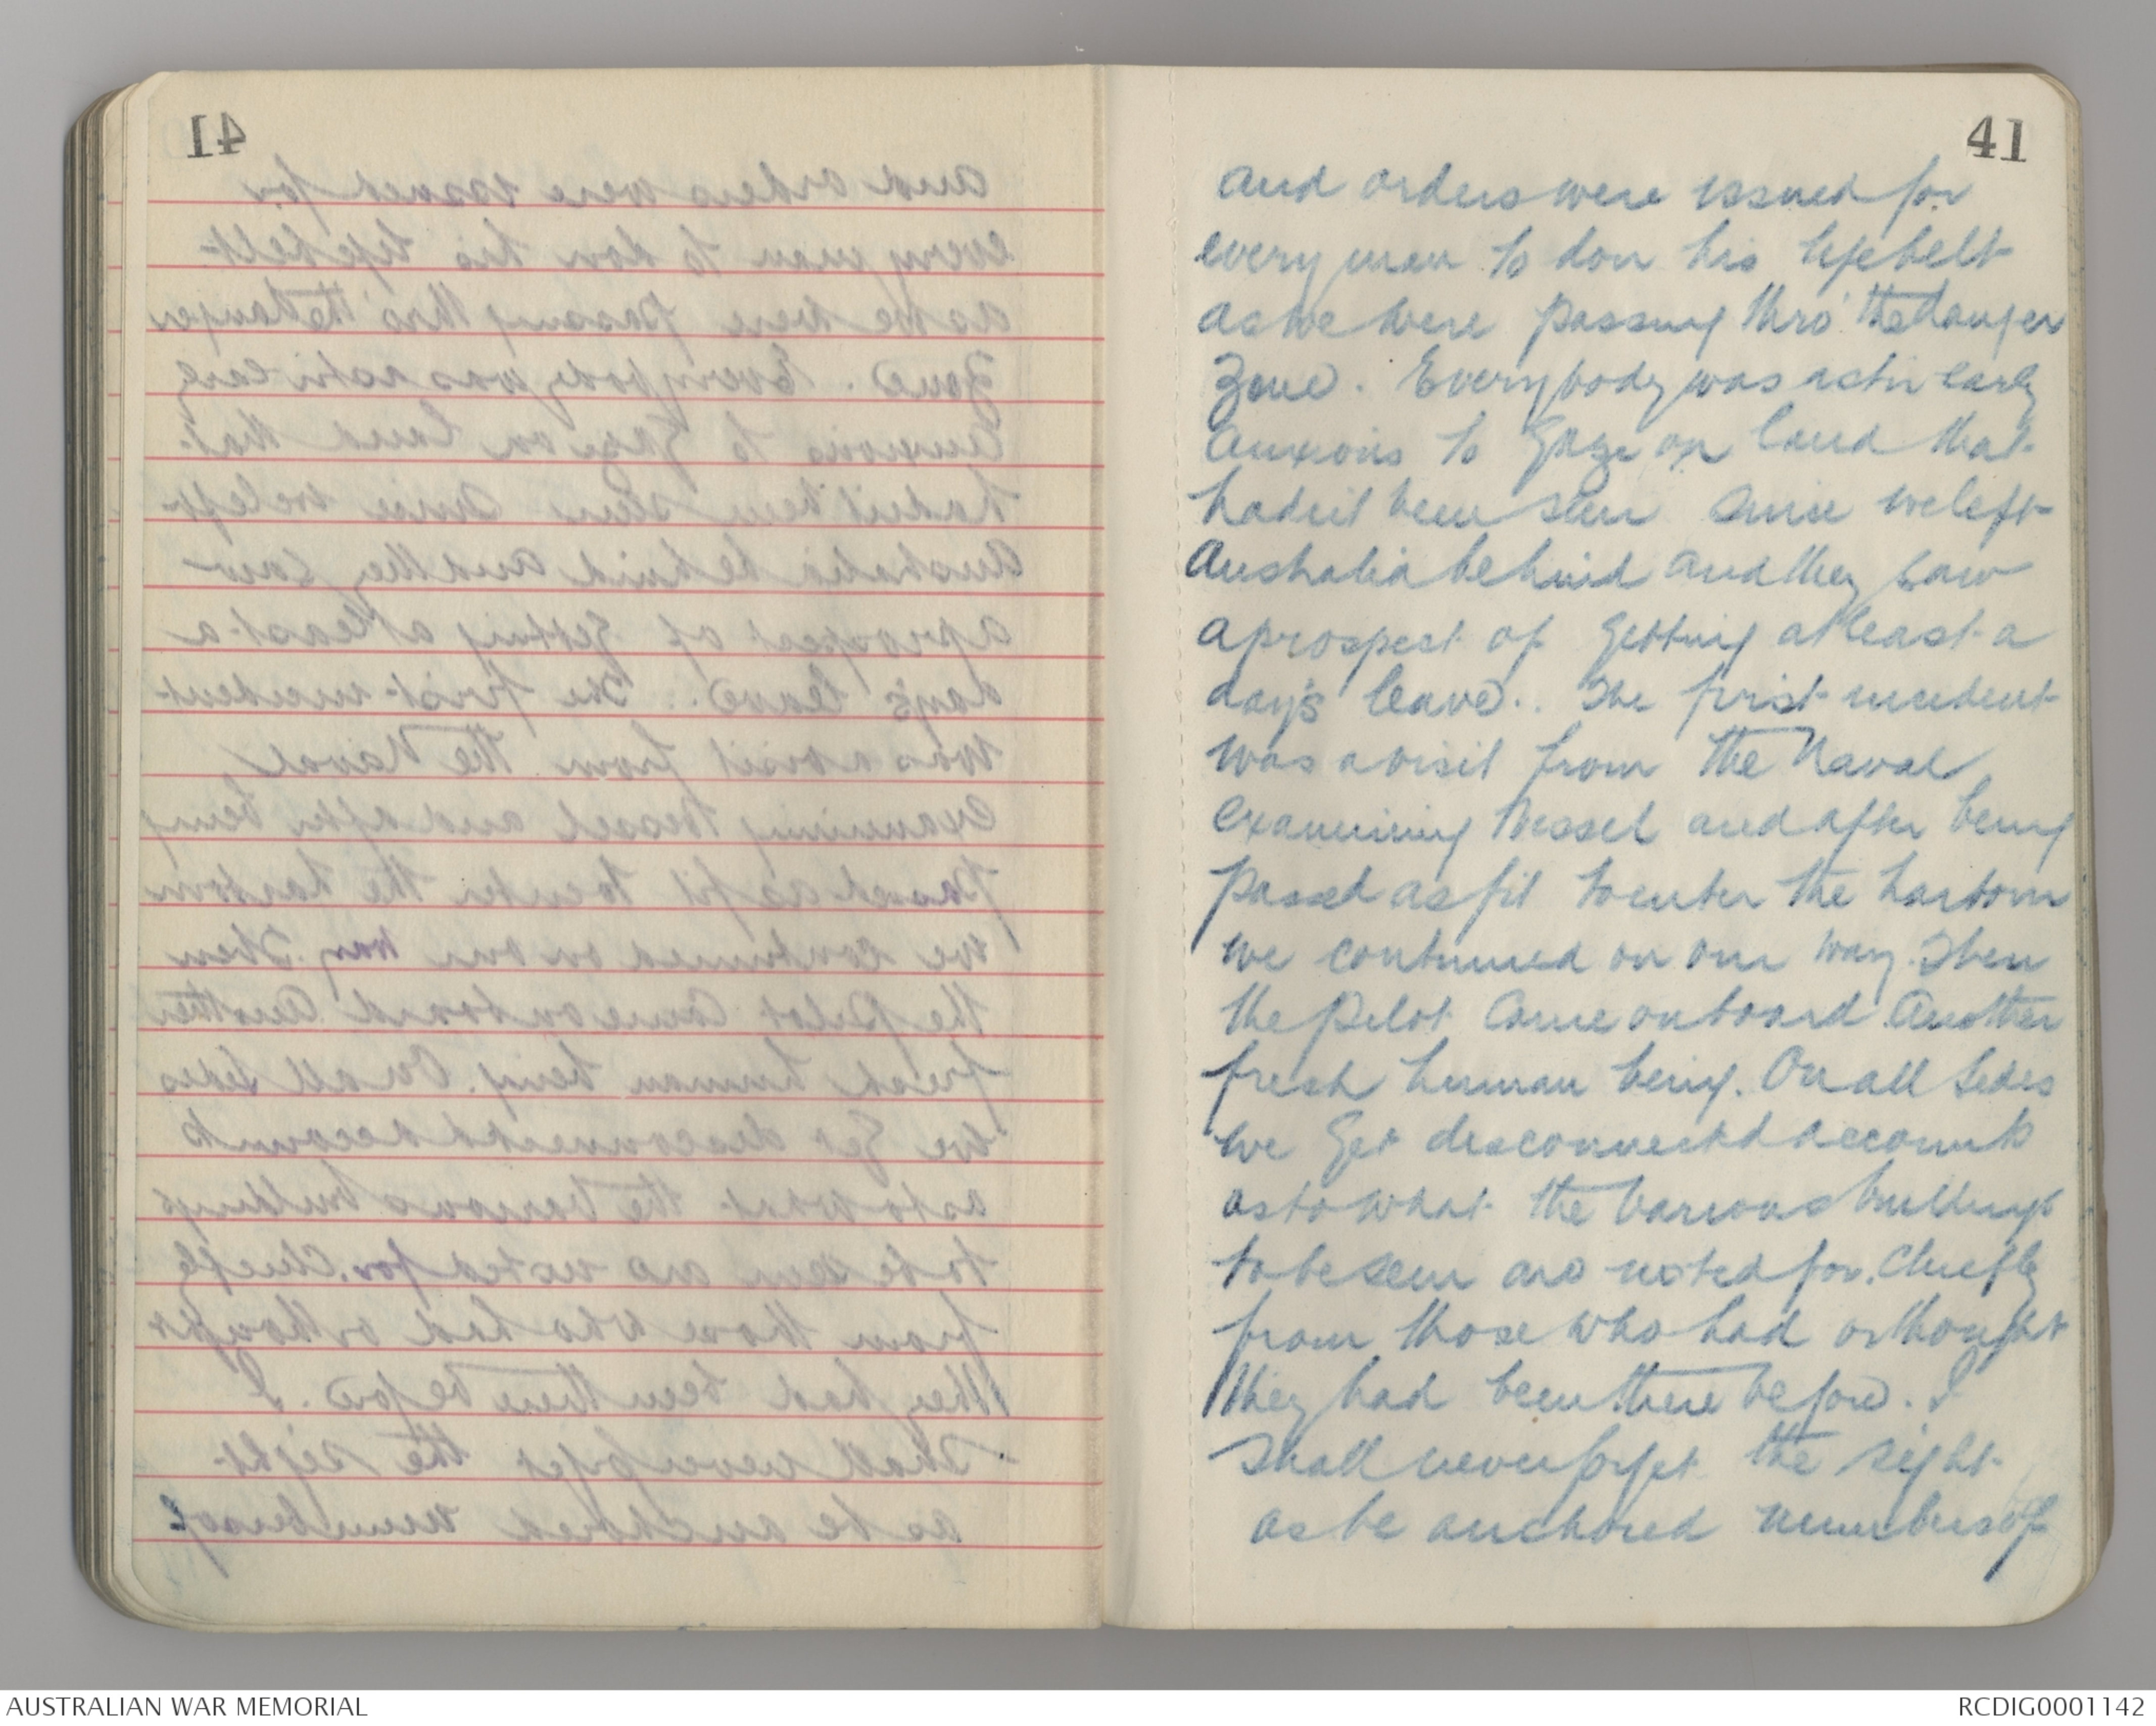 41
and orders were issued for
every man to don his lifebelt
as we were passing thro' the danger
Zone. Everybody was astir early
anxious to gaze on land that
hadn't been seen since we left
Australia behind and they saw
a prospect of getting at least a
day's leave.. The first incident
was a visit from the Naval
examining vessel and after being
passed as fit to enter the harbour
we continued on our way. Then
the pilot came on board. Another
fresh human being. On all sides
we get disconnected accounts
as to what the various buildings
to be seen are noted for. Chiefly
from those who had or thought
they had been there before. I
shall never forget the sight
as we anchored numbers of
41
AUSTRALIAN WAR MEMORIAL
RCDIG0001142